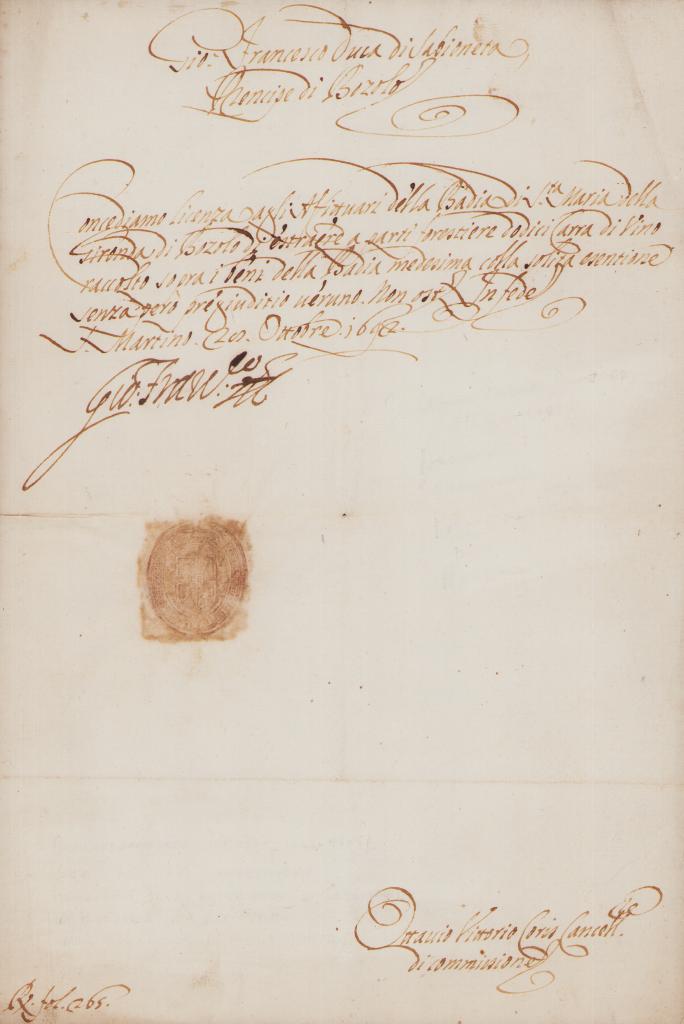 Gio: Francesco Duca di Sabioneta,
Prencipe di Bozolo
Concediamo licenza agli Affituari della Badia di S.ta Maria della
Gironda di Bozolo di estraere a parti forestiere dodici Carra di Vino
raccolto sopra i beni della Badia medesima colla solita esentione
senza però pregiuditio veruno. Non ost. In fede
S. Martino. 20. Ottobre 1692.
Gio: Fran.co
Ottavio Vittorio Coris Cancell.
di commissione
R. fol. 265.